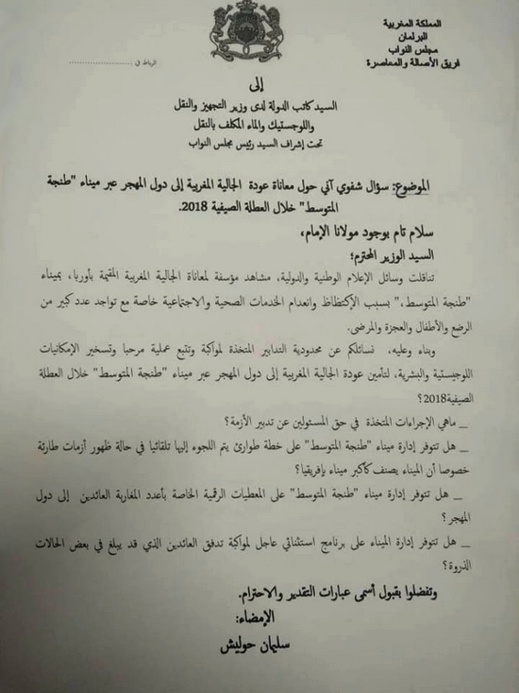 المملكة المغربية
البرلمان
مجلس النواب
فريق الأصالة والمعاصرة
الرباط في ........................
إلى
السيد كاتب الدولة لدى وزير التجهيز والنقل
واللوجستيك والماء المكلف بالنقل
تحت إشراف السيد رئيس مجلس النواب
الموضوع: سؤال شفوي آني حول معاناة عودة الجالية المغربية إلى دول المهجر عبر ميناء "طنجة
المتوسط" خلال العطلة الصيفية 2018.
سلام تام بوجود مولانا الإمام،
السيد الوزير المحترم؛
تناقلت وسائل الإعلام الوطنية والدولية، مشاهد مؤسفة لمعاناة الجالية المغربية المقيمة بأوربا، بميناء
"طنجة المتوسط،" بسبب الإكتظاظ وانعدام الخدمات الصحية والاجتماعية خاصة مع تواجد عدد كبير من
الرضع والأطفال والعجزة والمرضى.
وبناء وعليه، نسائلكم عن محدودية التدابير المتخذة لمواكبة وتتبع عملية مرحبا وتسخير الإمكانيات
اللوجيستية والبشرية، لتأمين عودة الجالية المغربية إلى دول المهجر عبر ميناء "طنجة المتوسط" خلال العطلة
الصيفية2018؟
_ ماهي الإجراءات المتخذة في حق المسئولين عن تدبير الأزمة؟
_ هل تتوفر إدارة ميناء "طنجة المتوسط" على خطة طوارئ يتم اللجوء إليها تلقائيا في حالة ظهور أزمات طارئة
خصوصا أن الميناء يصنف كأكبر ميناء بإفريقيا؟
_ هل تتوفر إدارة ميناء "طنجة المتوسط" على المعطيات الرقمية الخاصة بأعدد المغاربة العائدين إلى دول
المهجر؟
_ هل تتوفر إدارة الميناء على برنامج استثنائي عاجل لمواكبة تدفق العائدين الذي قد يبلغ في بعض الحالات
الذروة؟
وتفضلوا بقبول أسمى عبارات التقدير والاحترام.
الإمضاء:
سليمان حوليش